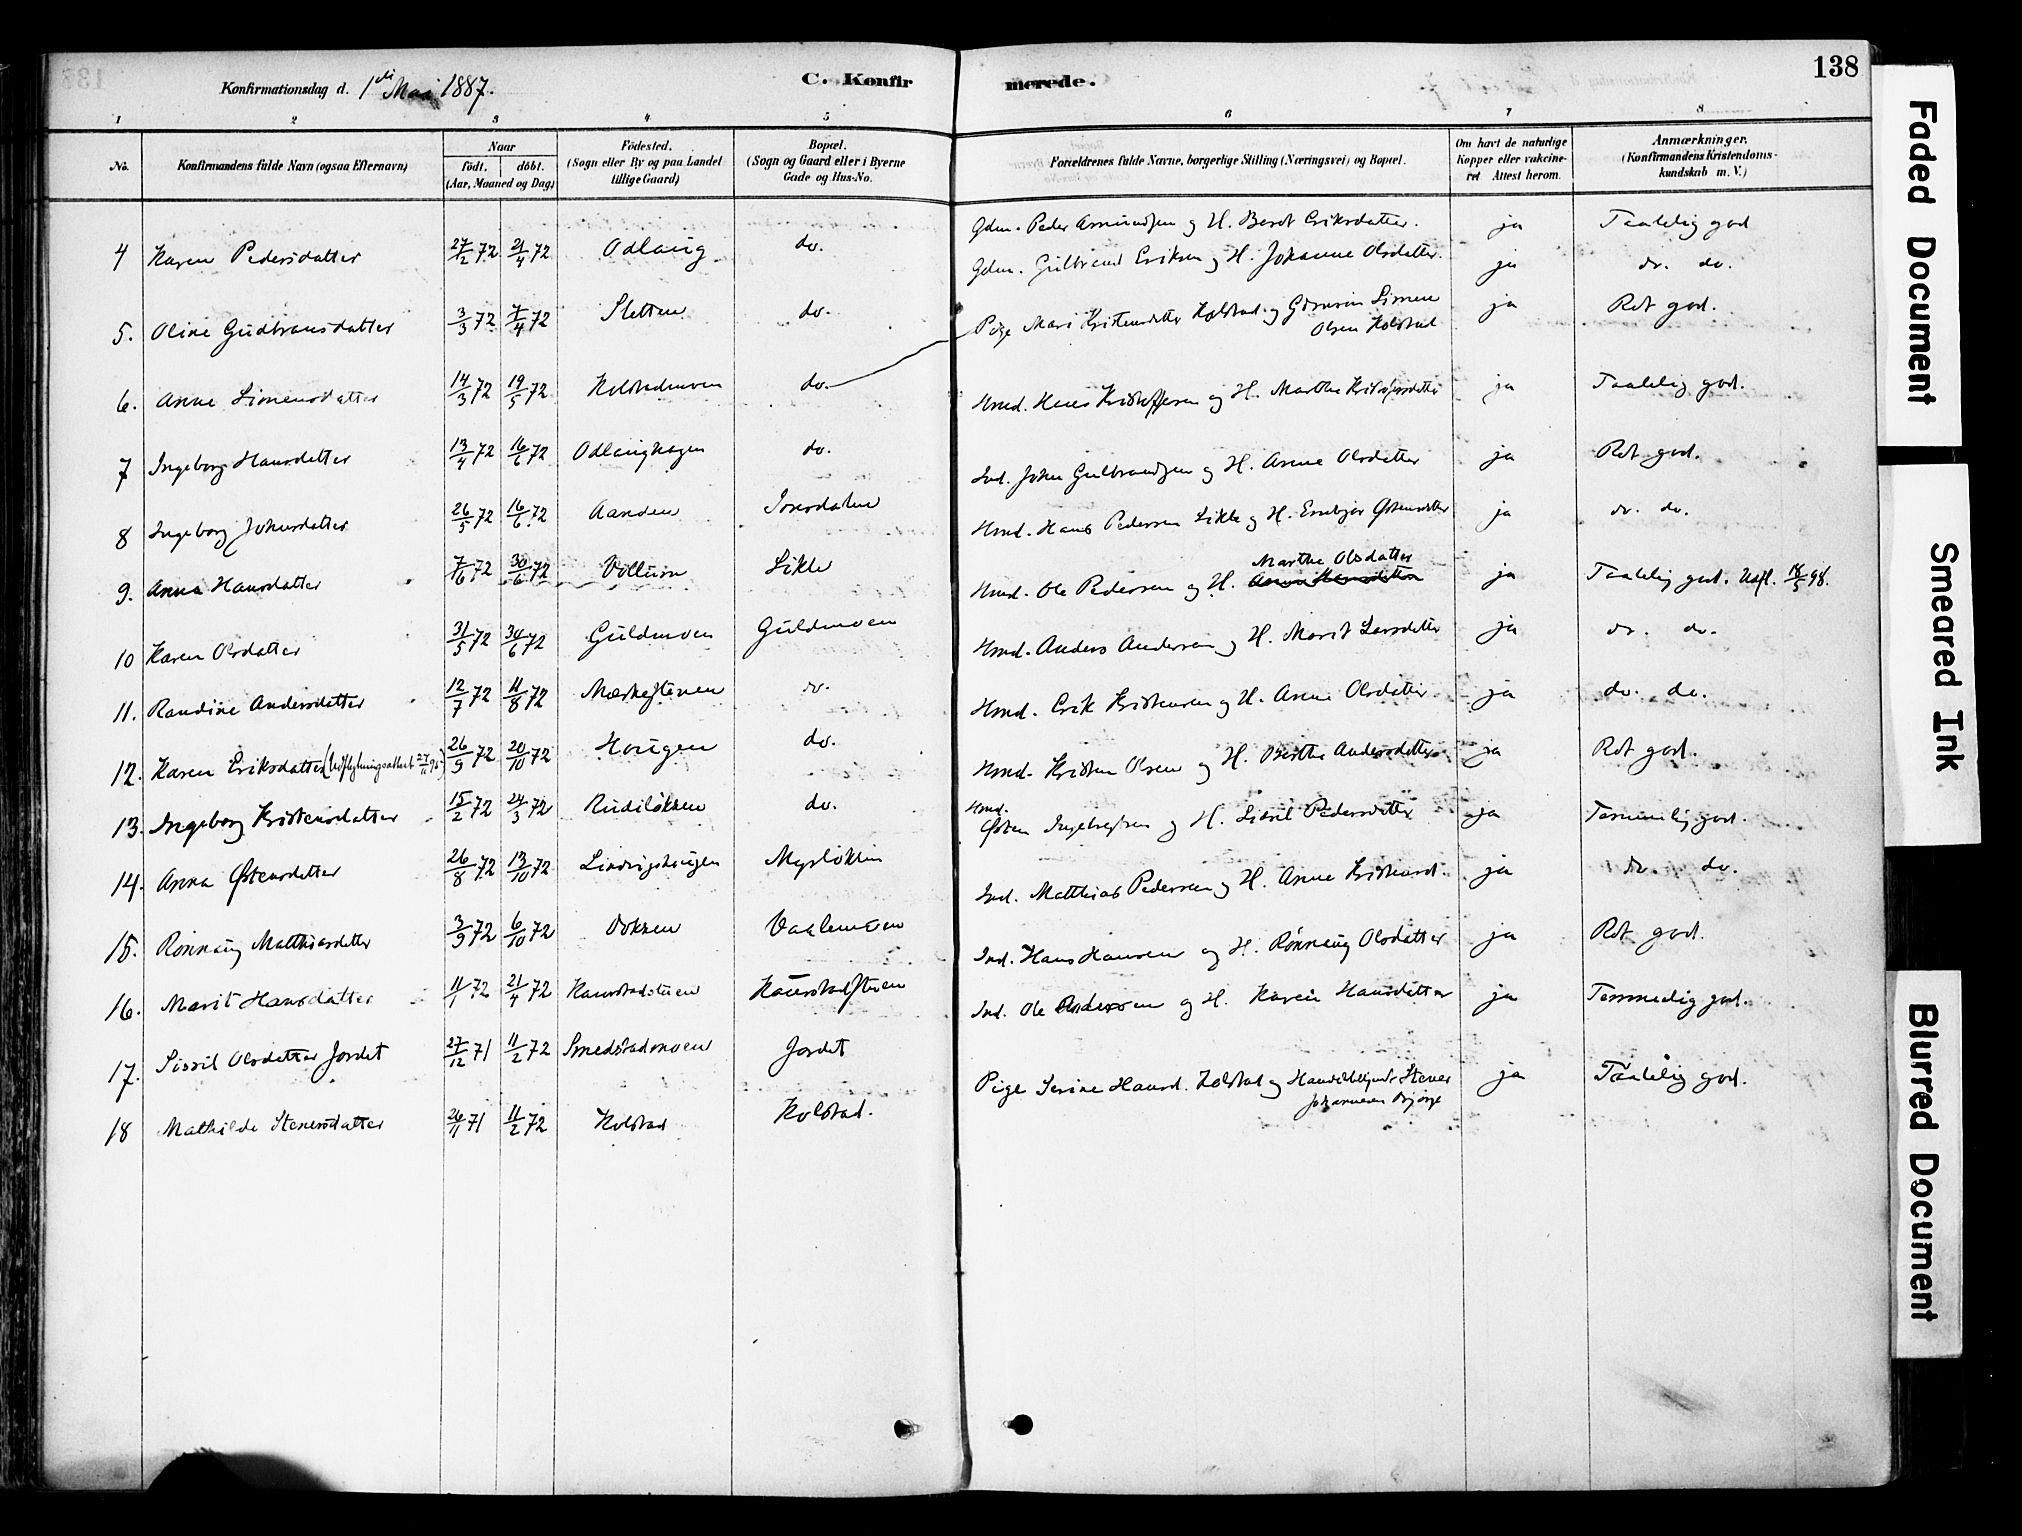 Konfirmationsdag d. 1ste Mai 1887. C. Konfir merede. 138
1 2 3 4 5 6 7 8
No. Konfirmandens fulde Navn (ogsaa Efternavn) Naar født. døbt. (Aar, Maaned og Dag) Fødested. (Sogn eller By og paa Landet tillige Gaard) Bopæl. (Sogn og Gaard eller i Byerne Gade og Hus-No. Forældrenes fulde Navne, borgerlige Stilling (Næringsvei) og Bopæl. Om havt de naturlige Kopper eller vakcineret Attest herom. Anmærkninger. (Konfirmandens Kristendomskundskab m. V.)
4 Karen Pedersdatter 27/2 72 21/4 72 Odlaug do. Gdm. Peder Amundsen og H. Berit Eriksdatter. ja Taalelig god
5. Oline Gudbransdatter 3/3 72 7/4 72 Sletten do. Gdm. Gulbrand Eriksen og H. Johanne Olsdatter. ja do. do.
6. Anne Simensdatter 14/3 72 19/5 72 Kolstadmoen do. Pige Mari Kristensdatter Kolstad og Simen Olsen Kolstad ja Ret god.
7 Ingeborg Hansdatter 13/4 72 16/6 72 Odlaughagen do. Hmd. Hans Kristoffersen og H. Marthe Kristofersdatter ja Taalelig god.
8 Ingeborg Johnsdatter 26/5 72 16/6 72 Aanden Ind. John Gulbrandsen og H. Anne Olsdatter ja Ret god.
9. Anna Hansdatter 7/6 72 30/6 72 Vollum Likle Hmd. Hans Pedersen Likle og H. Embjør Østensdatter ja do. do.
10 Karen Olsdatter 31/5 72 30/6 72 Guldmoen Guldmoen Hmd. Ole Pedersen og H. Marthe Olsdatter ja Taalelig god. Udfl. 18/5 98.
11. Randine Andersdatter 12/7 72 11/8 72 do. Hmd. Anders Andersen og H. Marit Larsdatter ja do. do.
12. Karen Eriksdatter (Udflytningsattest 27/11 95) 26/9 72 20/10 72 Hougen do. Hmd. Erik Kristensen og H. Anne Olsdatter ja do. do.
13. Ingeborg Kristensdatter 15/2 72 24/3 72 Rudiløkken do. Hmd. Kristen Olsen og H. Berthe Andersdatter ja Ret god.
14. Anna Østensdatter 26/8 72 13/10 72 Myrløkken Hmd. Østen Ingebretsen og H. Sisil Pedersdatter ja Temmelig god.
15. Rønnaug Matthiasdatter 3/9 72 6/10 72 Vaalemoen Ind. Matthias Pedersen og H. Anne Kristiansd. ja do. do.
16. Marit Hansdatter 11/1 72 21/4 72 Kaurstadstuen Kaurstadstuen Ind. Hans Hansen og H. Rønnaug Olsdatter ja Ret god.
17. Sissil Olsdatter Jordet 27/12 71 11/2 72 Smedstadmoen Jordet Ind. Ole Andersen og H. Karen Hansdatter ja Temmelig god.
18 Mathilde Stenersdatter 26/11 71 11/2 72 Kolstad Kolstad. Pige Serine Hansd. Kolstad og Handelsbetjent Stener Johannesen Bjørge ja Taalelig god.
Faded Document
Smeared Ink
Blurred Document